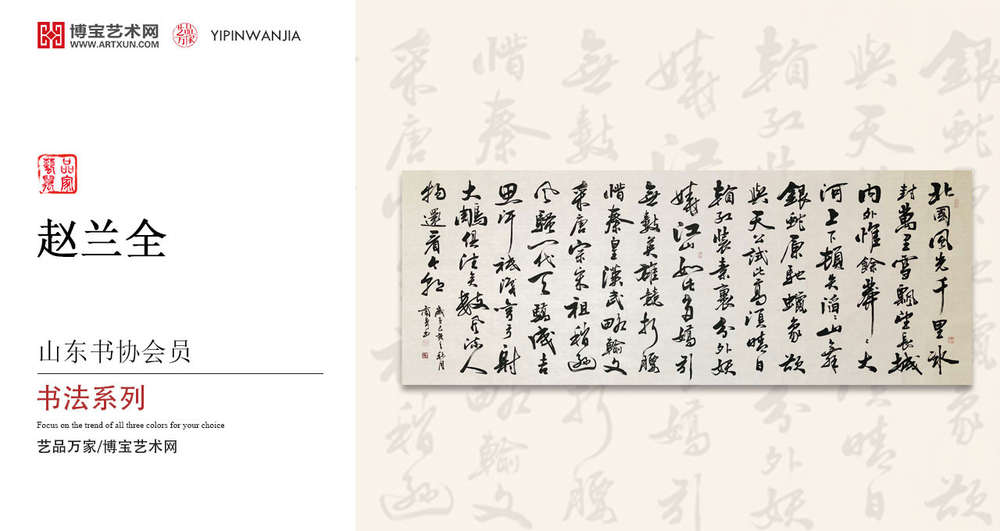 博宝艺术网
WWW.ARTXUN.COM
艺品万家
YIPINWANJIA
赵兰全
山东书协会员
书法系列
Focus on the trend of all three colors for your choice
艺品万家/博宝艺术网
北國風光千里冰
封萬里雪飄望長城
內外惟餘莽〻大
河上下頓失滔〻山舞
銀蛇原馳蠟象欲
與天公試比高須晴日
看紅裝素裹分外妖
嬈江山如此多嬌引
無數英雄競折腰
惜秦皇漢武略輸文
采唐宗宋祖稍遜
風騷一代天驕成吉
思汗祇識彎弓射
大鵰俱往矣數風流人
物還看今朝